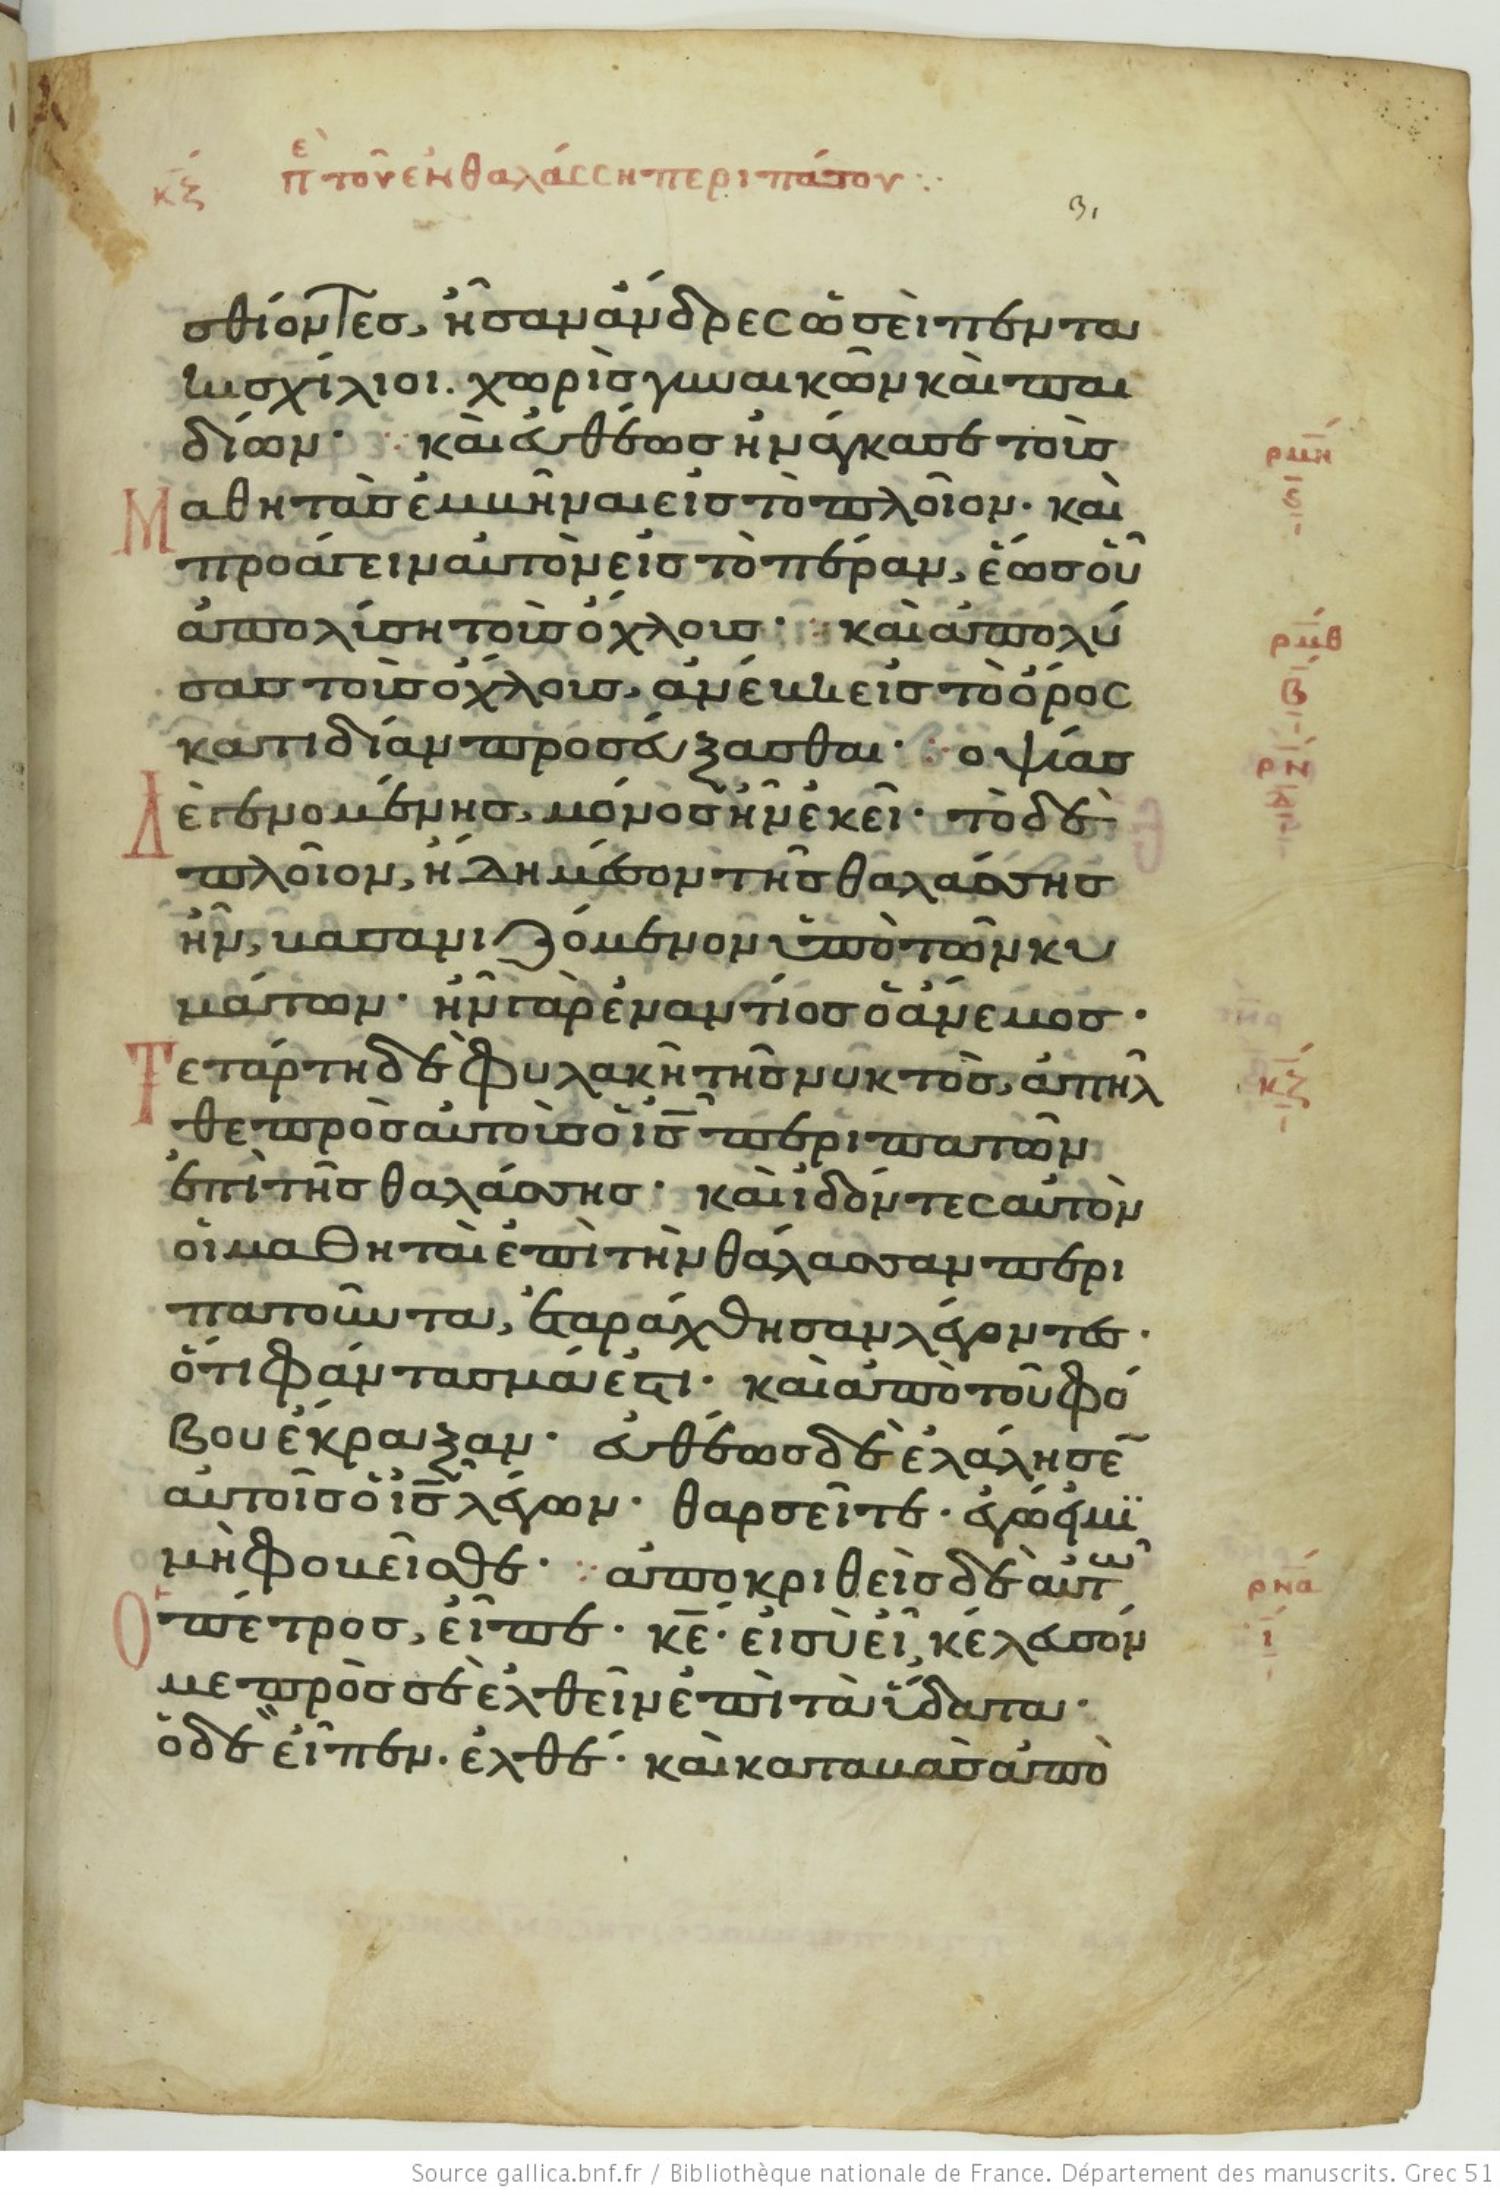 κζ πε τοῦ ἐν θαλάσση περιπάτου
σθίοντες, ἦσαν ἄνδρες ὡσεὶ πεντα
κισχίλιοι. χωρὶς γυναικῶν καὶ παι
δίων· καὶ εὐθέως ἠνάγκασε τοὺς
Μαθητὰς ἐμβῆναι εἰς τὸ πλοῖον· καὶ
προάγειν αὐτὸν εἰς τὸ πέραν, ἕως οὗ
ἀπολύση τοὺς ὄχλους· καὶ ἀπολύ
σας τοὺς ὄχλους, ἀνέβη εἰς τὸ ὄρος
κατιδίαν προσεύξασθαι· ὀψίας
Δὲ γενομένης, μόνος ἦν ἐκεῖ· τὸ δὲ
πλοῖον, ἤδη μέσον τῆς θαλάσσης
ἦν, βασανιζόμενον ὑπὸ τῶν κυ
μάτων· ἦν γὰρ ἐναντίος ὁ ἄνεμος·
Τετάρτη δὲ φυλακῆ τῆς νυκτὸς, ἀπῆλ
θε πρὸς αὐτοὺς ὁ ις περιπατῶν
ἐπὶ τῆς θαλάσσης· καὶ ἰδόντες αὐτὸν
οἱ μαθηταὶ ἐπὶ τὴν θάλασσαν περι
πατοῦντα, ἐταράχθησαν λέγοντες·
ὅτι φάντασμά ἐστι· καὶ ἀπὸ τοῦ φό
βου ἔκραξαν· εὐθέως δὲ ἐλάλησε
αὐτοῖς ὁ ις λέγων· θαρσεῖτε· ἐγώ εἰμι
μὴ φοβεῖσθε· ἀποκριθεὶς δὲ αὐτῶ
Ὁ πέτρος, εἶπε· κε· εἰ σὺ εἶ, κέλευσόν
με πρὸς σὲ ἐλθεῖν ἐπὶ τὰ ὕδατα·
ὁ δὲ εἶπεν· ἐλθέ· καὶ καταβὰς ἀπὸ
ρμη
ς
ρμθ
β
ρν
δ
κζ
ρνα
ι
Source gallica.bnf.fr / Bibliothèque nationale de France. Département des manuscrits. Grec 51